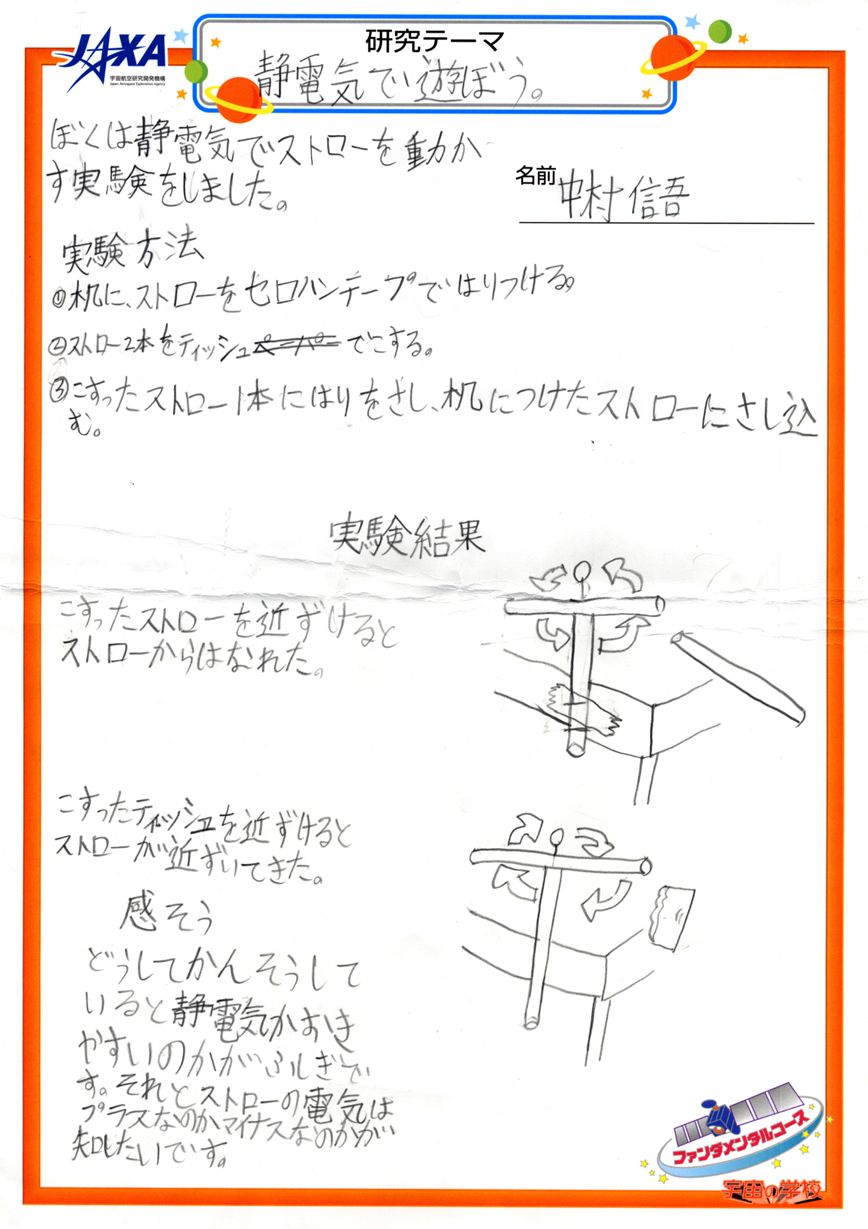 JAXA
宇宙航空研究開発機構
Japan Aerospace Exploration Agency
研究テーマ
静電気で遊ぼう。
ぼくは静電気でストローを動か
す実験をしました。
名前 中村信吾
実験方法
①机に、ストローをセロハンテープではりつける。
②ストロー2本をティッシュペーパーでこする。
③こすったストロー1本にはりをさし、机につけたストローにさし込
む。
実験結果
こすったストローを近ずけると
ストローからはなれた。
こすったティッシュを近ずけると
ストローが近ずいてきた。
感そう
どうしてかんそうして
いると静電気がおき
やすいのかがふしぎで
す。それとストローの電気は
プラスなのかマイナスなのかが
知りたいです。
ファンダメンタルコース
宇宙の学校